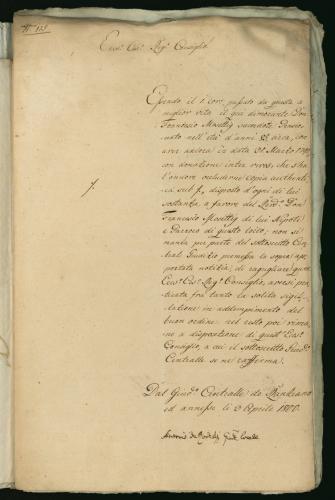 N° 113
Ecc.° Ces.° Reg.° Consiglio
Essendo il 1 corr. passato da questa a
miglior vita il qui dimorante Don
Francesco Maestig sacerdote Pensio-
nato nell'età d'anni 82 circa, con
aver ancora in data 21 Marzo
con donazione inter vivos, che s'ha
l'onore includerne copia authenti-
ca sub /. disposto d'ogni di lui
sostanza a favore del Don
Francesco Maestig di lui Nipote
e Parroco di questo loco; non si
manca per parte del sottoscritto Cen-
tral Giudizio premessa la sopra ap-
portata notizia, di ragguagliar quest'
Ecc.° Ces.° Reg.° Consiglio, aversi pra-
ticata fra tanto la solita sigil-
lazione in adempimento del
buon ordine, nel resto poi rima-
ne a disposizione di quest' Ecc.°
Consiglio, a cui il sottoscritto Giud.°
Centralle se ne raffirma.
/.
Dal Giud.° Centralle de
ed annesse li 3 Aprile 1800.
Antonio de Giud. Centrale